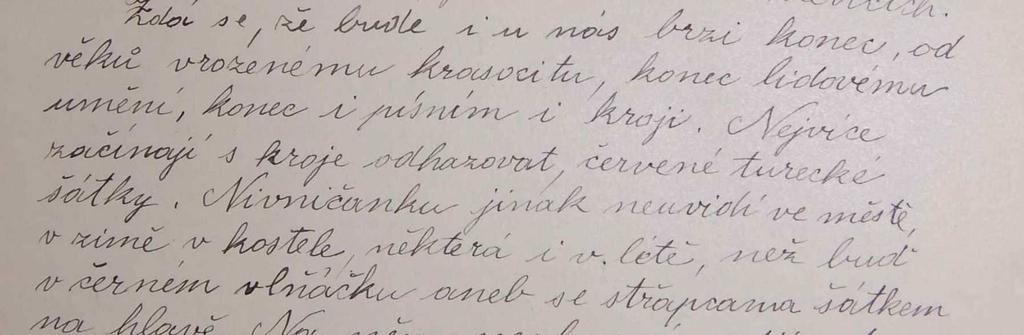 Zdá se, že bude i u nás brzi konec, od
věků vrozenému krasocitu, konec lidovému
umění, konec i písním i kroji. Nejvíce
začínají s kroje odhazovat, červené turecké
šátky. Nivničanku jinak neuvidí ve městě,
v zimě v kostele, některá i v. létě, než buď
v černém vlňáčku aneb se střapcama šátkem
na hlavě. Na